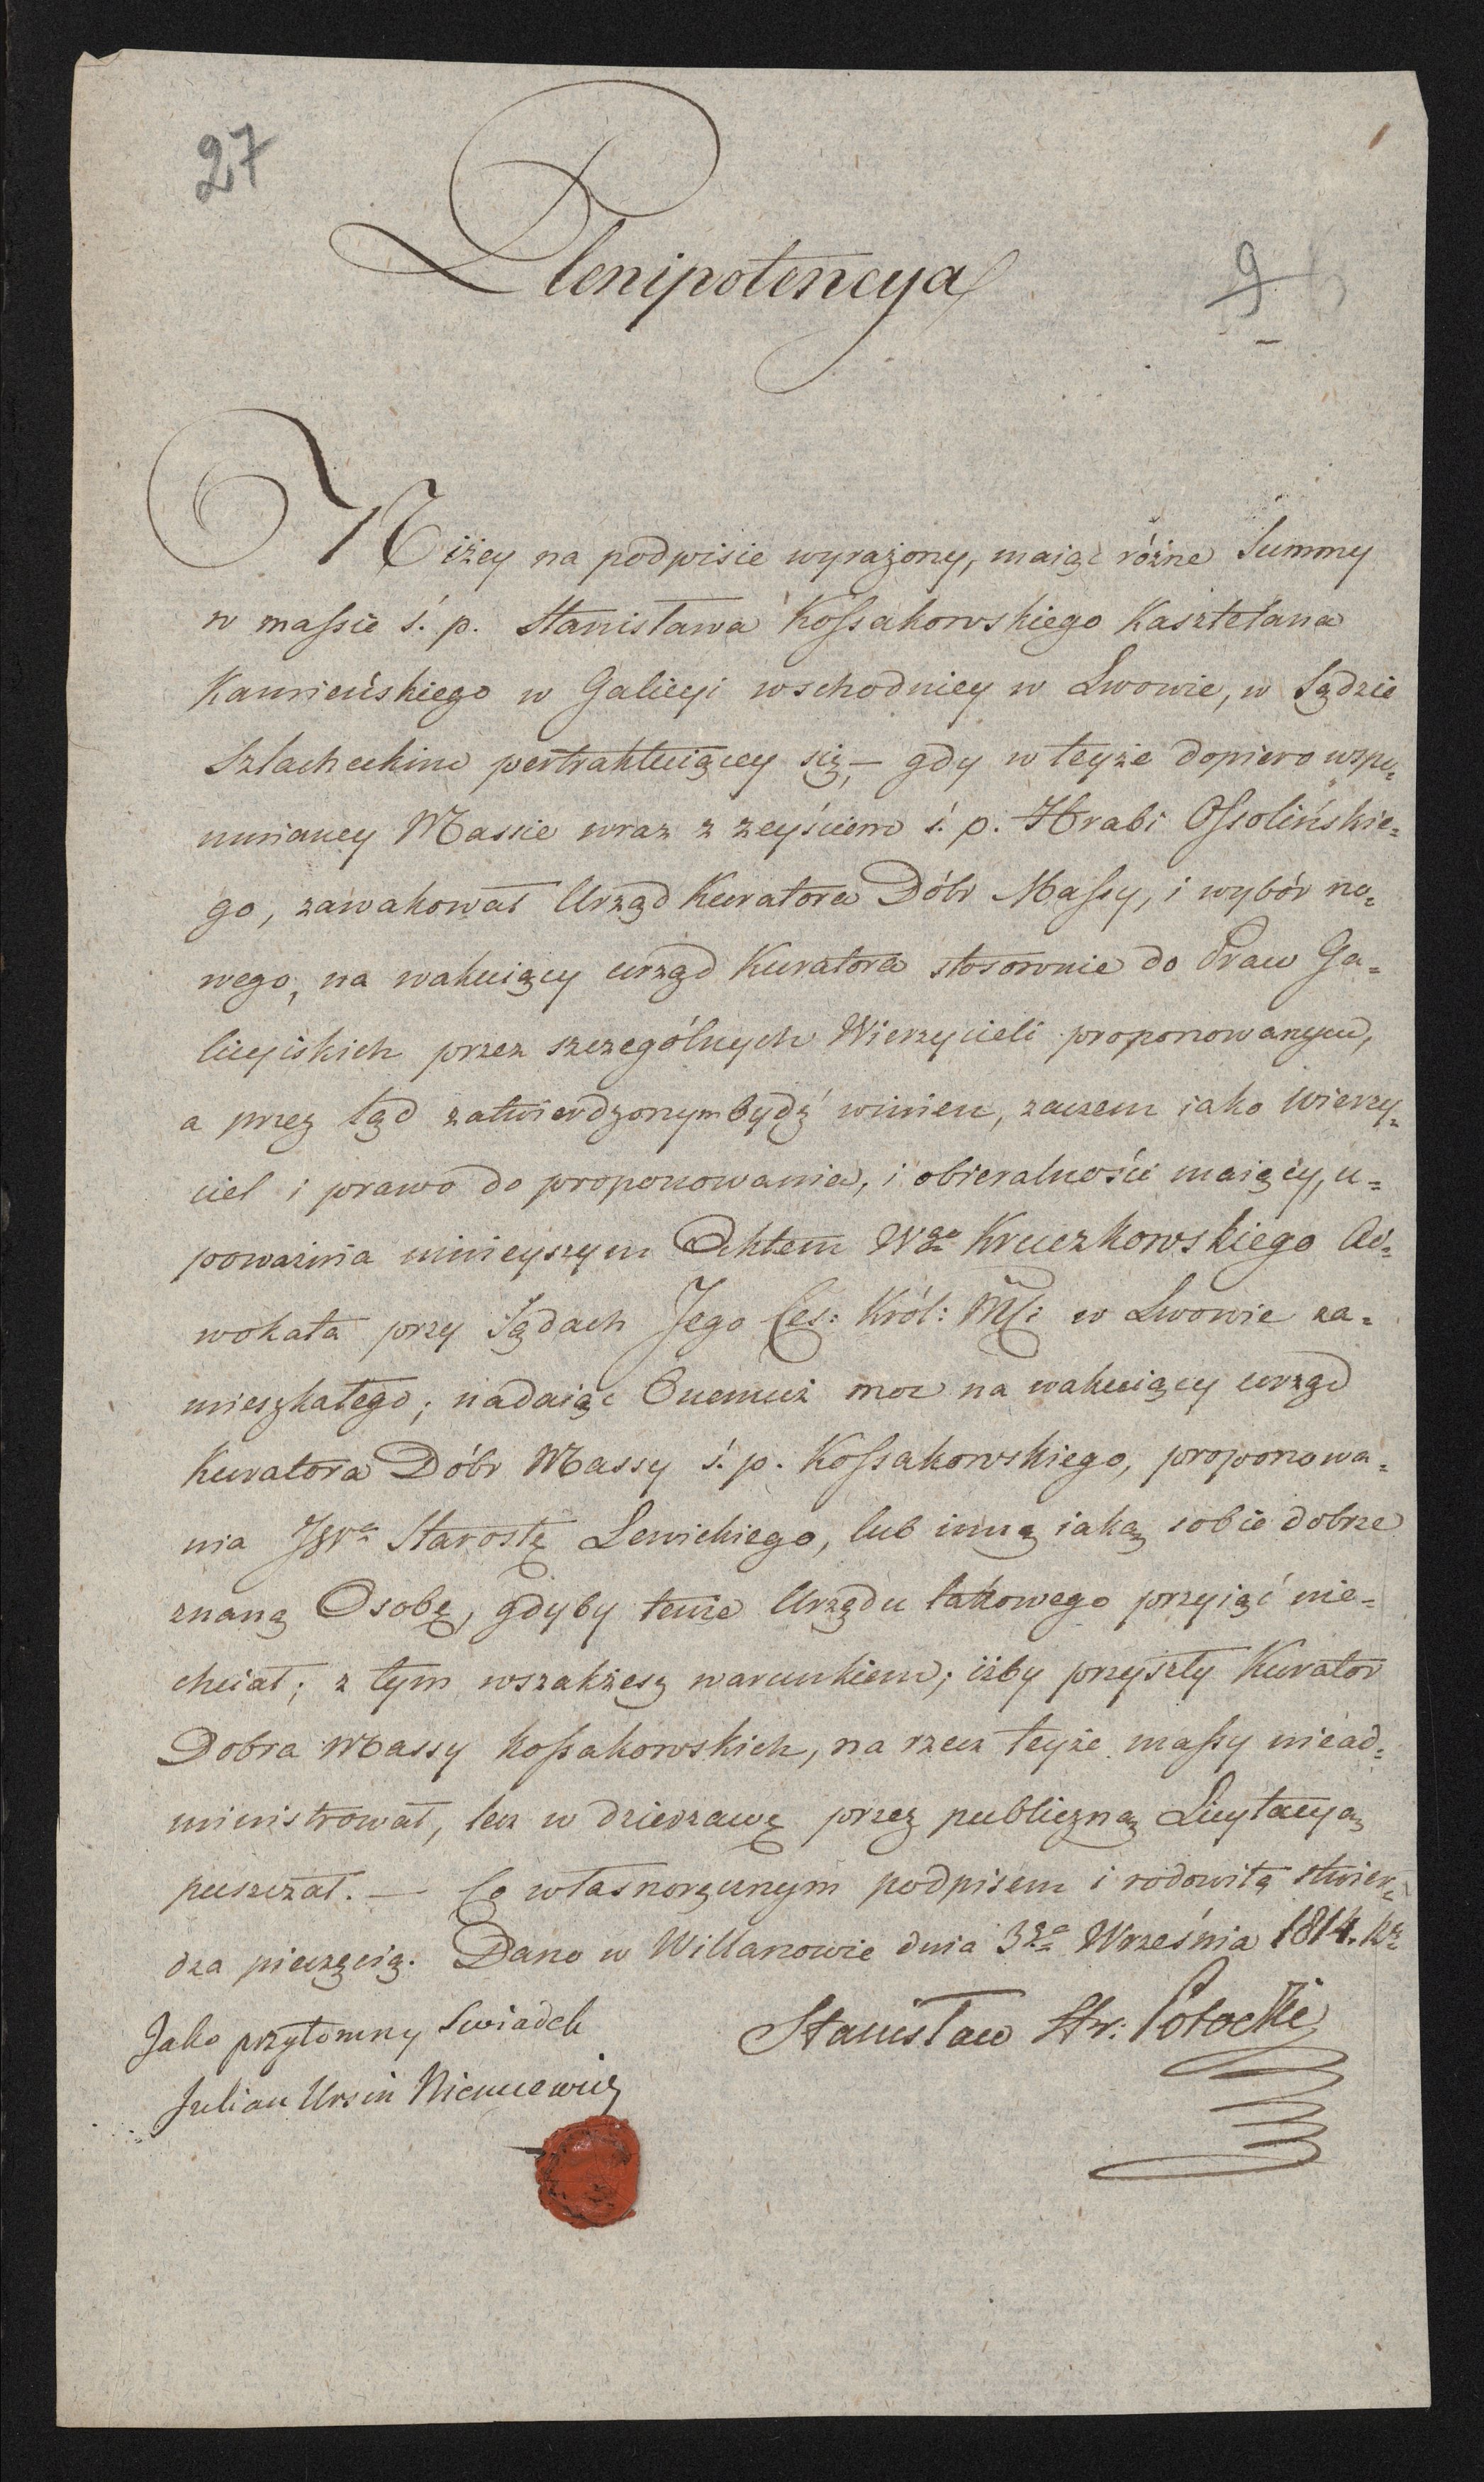 27
Plenipotencya
9
Niżey na podpisie wyrażony, maiąc różne Summy
w massie ś. p. Stanisława Kossakowskiego Kasztelana
Kamieńskiego w Galicyi wschodniey w Lwowie, w Sądzie
Szlacheckim pertraktuiącey się, — gdy w teyże dopiero wspo=
mnianey Massie wraz z zeyściem ś. p. Hrabi Ossolińskie=
go, zawakował Urząd Kuratora Dóbr Massy, i wybór no=
wego, na wakuiący urząd Kuratora stosownie do Praw Ga=
licyiskich przez szczególnych Wierzycieli proponowanym,
a przez Sąd zatwierdzonym bydź winien, zaczem iako Wierzy=
ciel i prawo do proponowania, i obieralności maiący, u=
poważnia ninieyszym Aktem Wgo Kruczkowskiego Ad=
wokata przy Sądach Jego Ces: Król: Mś: w Lwowie za=
mieszkałego; nadaiąc Onemuż moc na wakuiący urząd
Kuratora Dóbr Massy ś. p. Kossakowskiego, proponowa=
nia JWo Starostę Lewickiego, lub inną iaką sobie dobrze
znaną Osobę, gdyby tenże Urzędu takowego przyiąć nie=
chciał; z tym wszakżesz warunkiem; iżby przyszły Kurator
Dobra Massy Kossakowskich, na rzecz teyże massy niead=
ministrował, lecz w dzierzawę przez publiczną Licytacyą
puszczał. — Co własnoręcznym podpisem i rodowitą stwier=
dza pieczęcią. Dano w Willanowie dnia 3go Września 1814. Rz
Jako przytomny Swiadek
Stanisław Hr: Potocki
Julian Ursin Niemcewicz